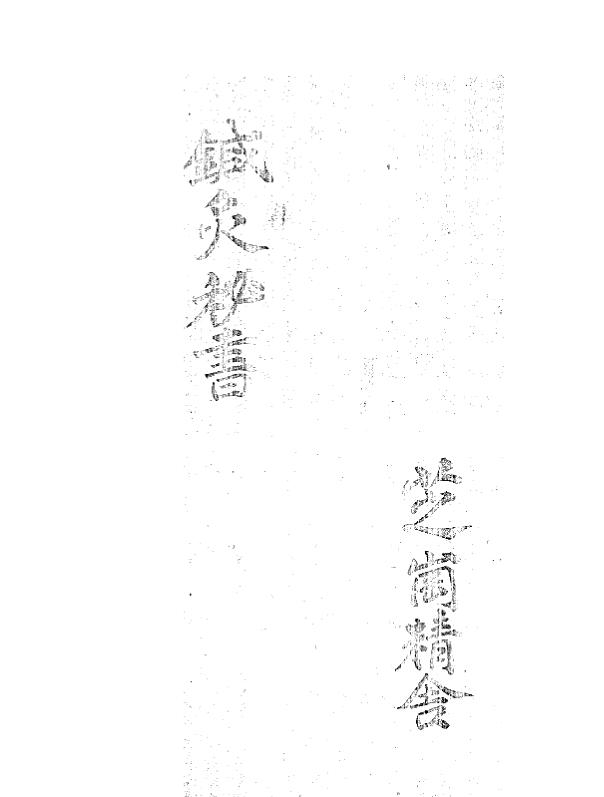 芝精舍
鍼灸秘書